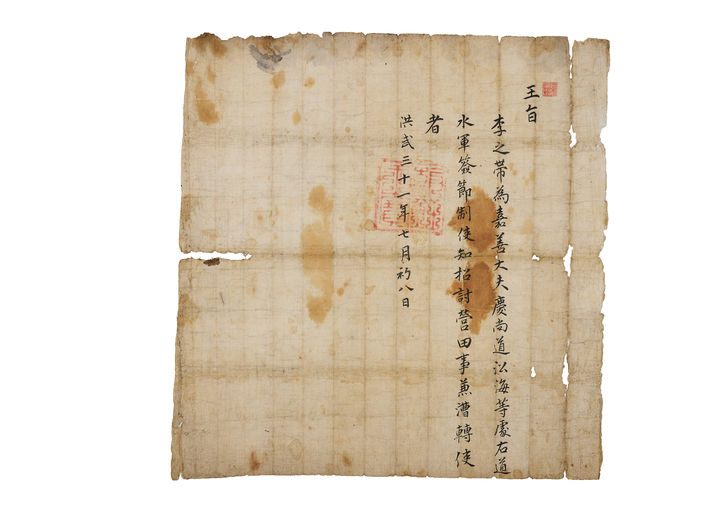 王旨
李之帶為嘉善大夫慶尚道沿海等處右道
水軍簽節制使知招討營田事兼漕轉使
者
洪武三十一年七月初八日